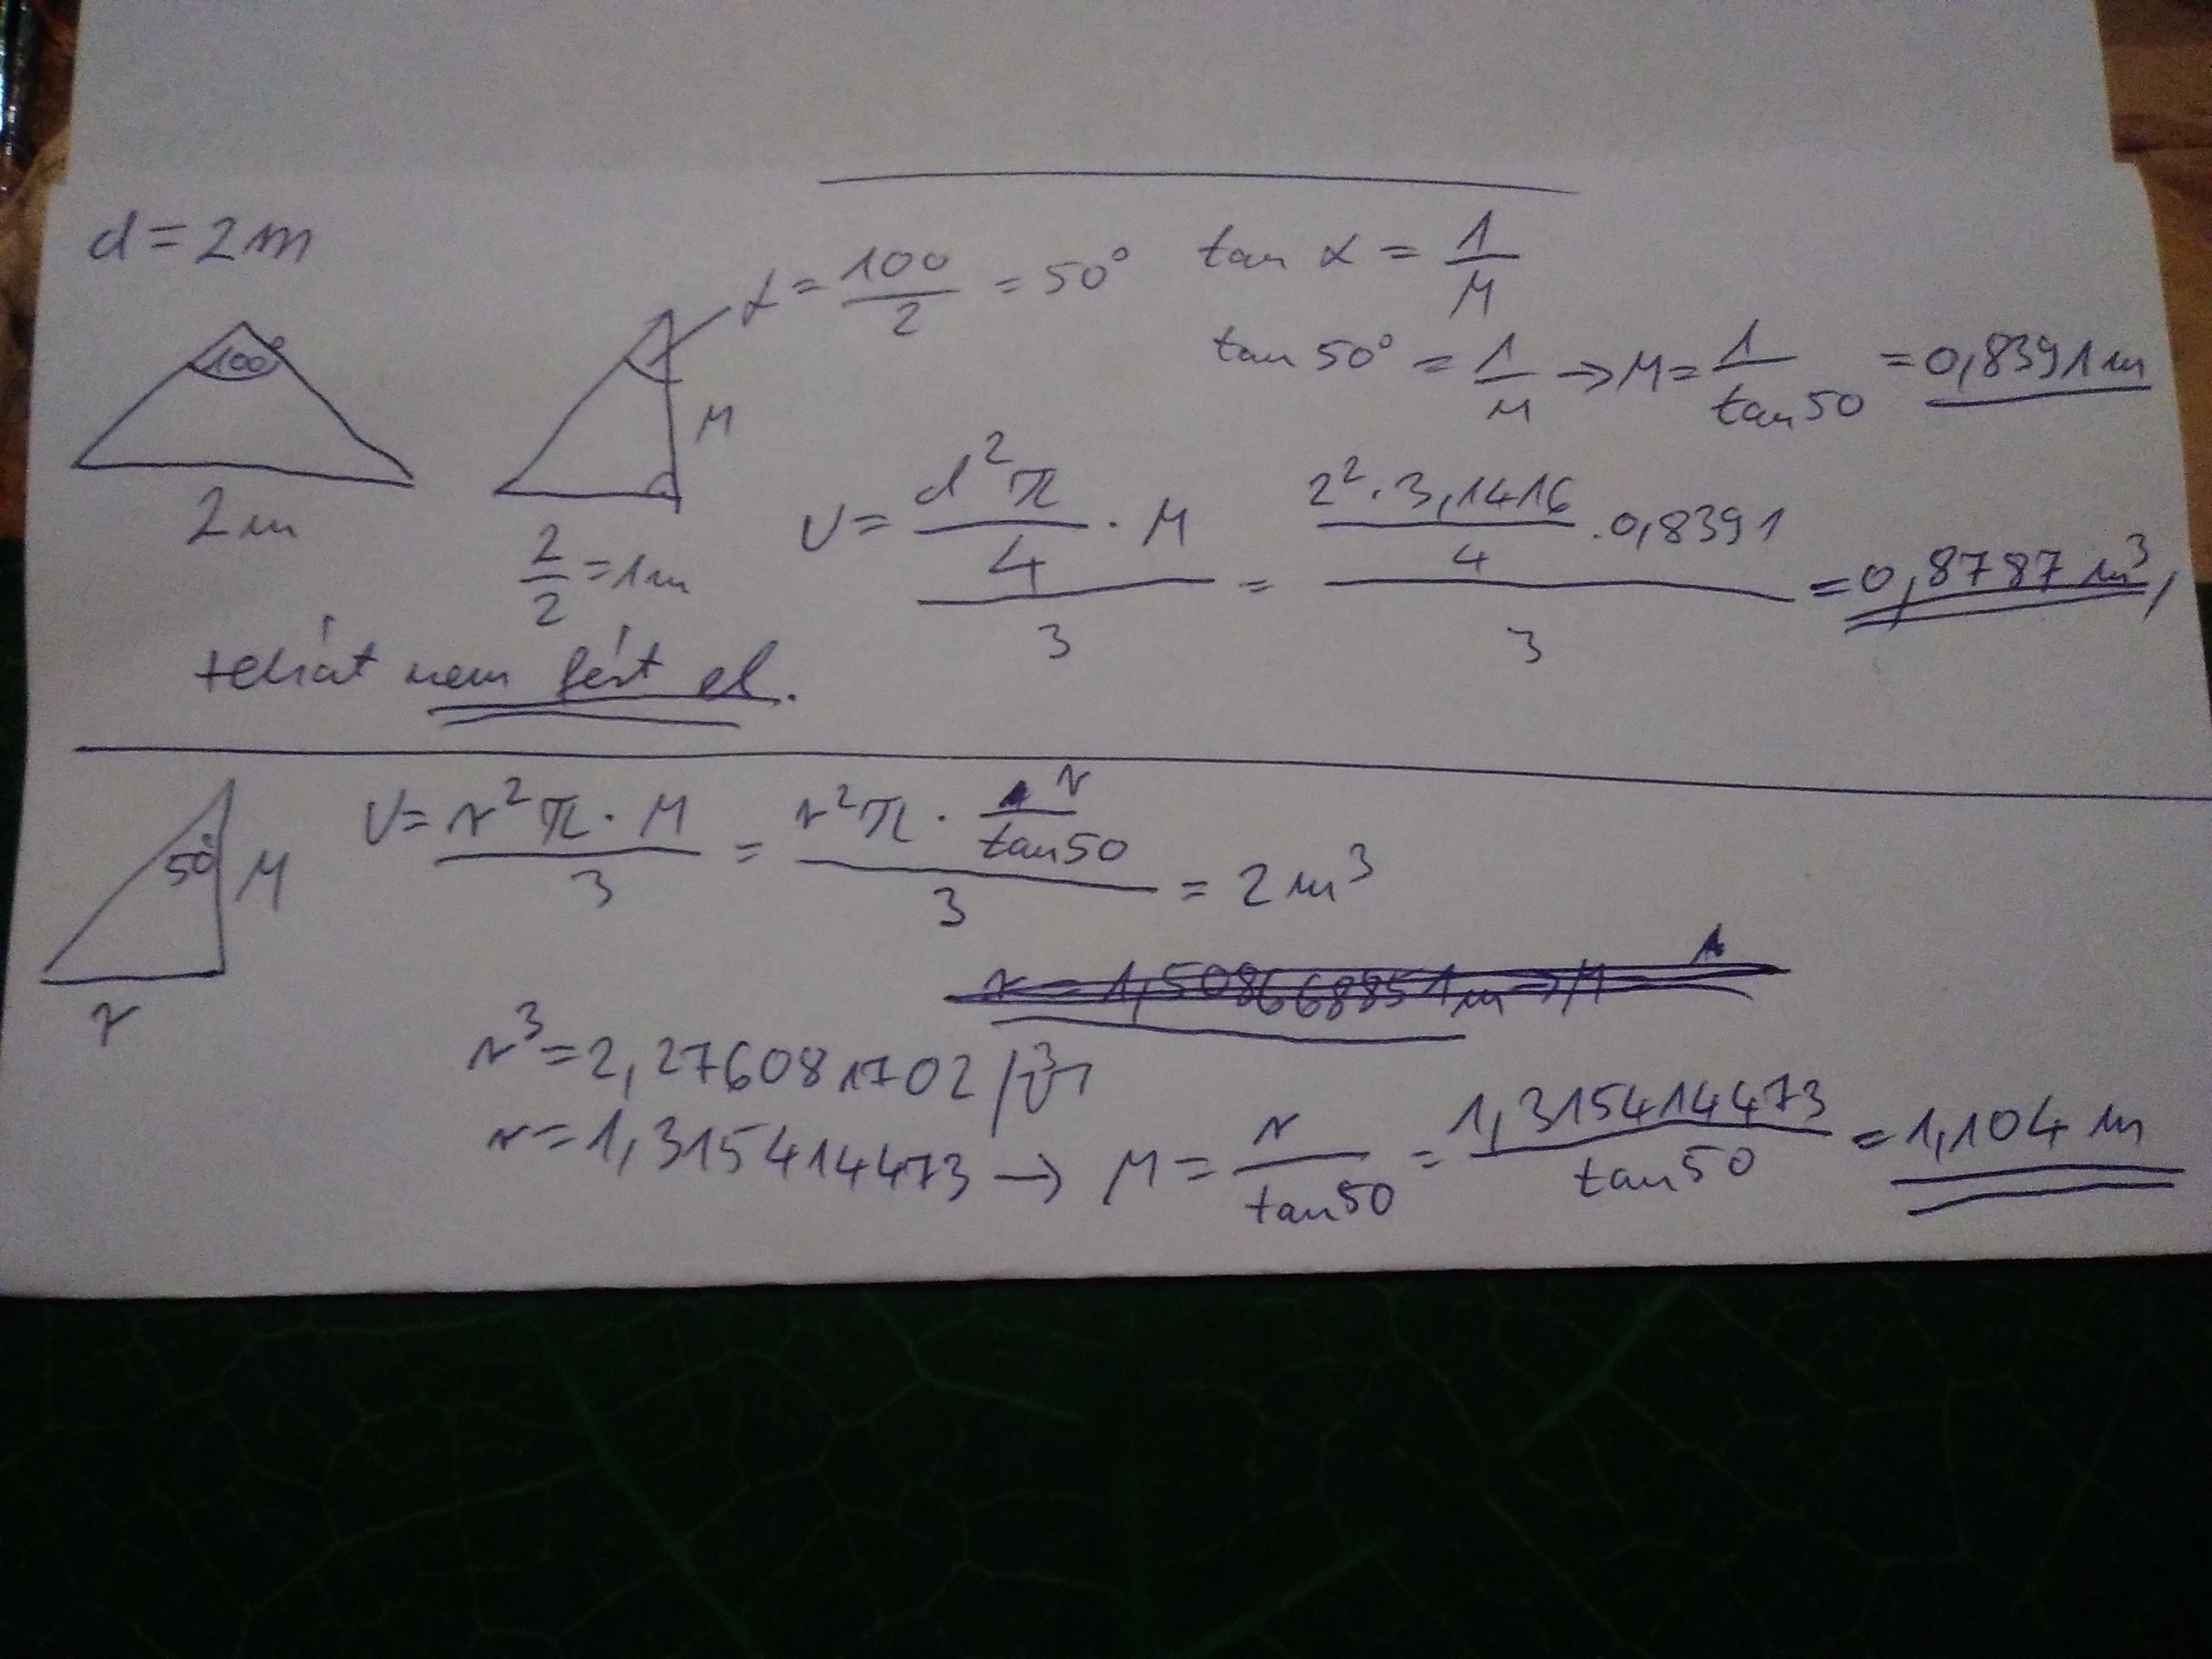 d = 2m
100°
2m
α = 100/2 = 50°
M
2/2 = 1m
tan α = 1/M
tan 50° = 1/M → M = 1/tan50 = 0,8391m
V = (d²π/4 · M)/3 = (2² · 3,1416/4 · 0,8391)/3 = 0,8787 m³,
tehát nem fért el.
50°
M
r
V = r²π · M/3 = (r²π · r/tan50)/3 = 2 m³
r = 1,508668851m → M =
r³ = 2,276081702 /∛
r = 1,315414473 → M = r/tan50 = 1,315414473/tan50 = 1,104 m